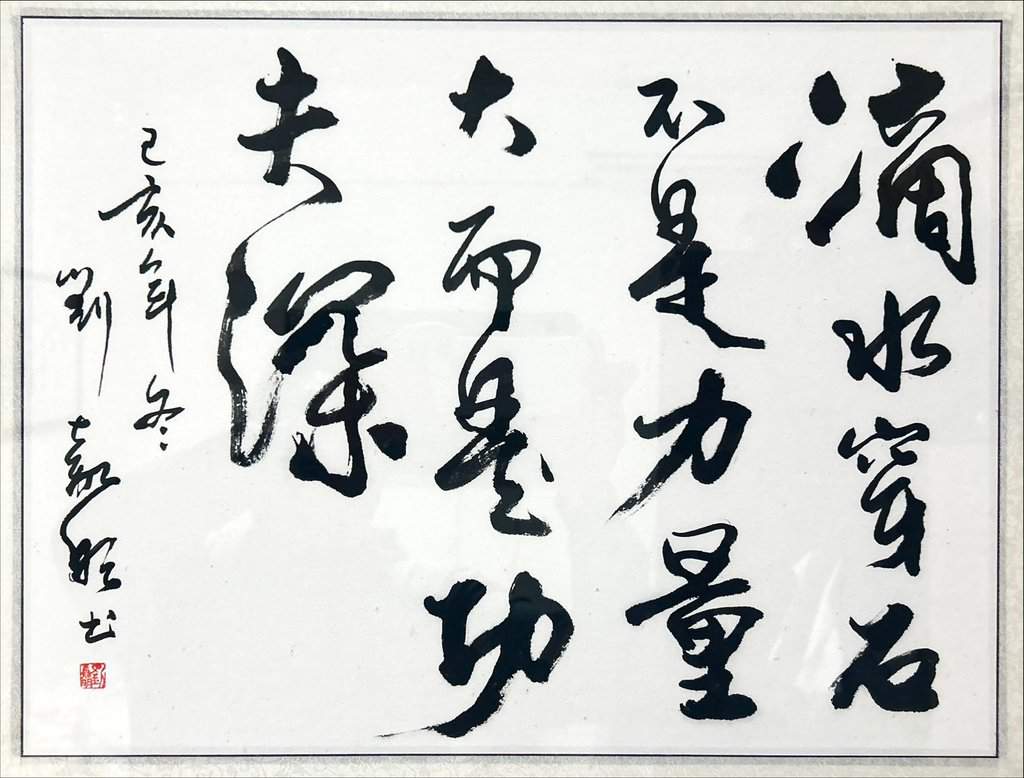 滴水穿石
不是力量
大而是功
夫深
己亥年冬
劉嘉明书